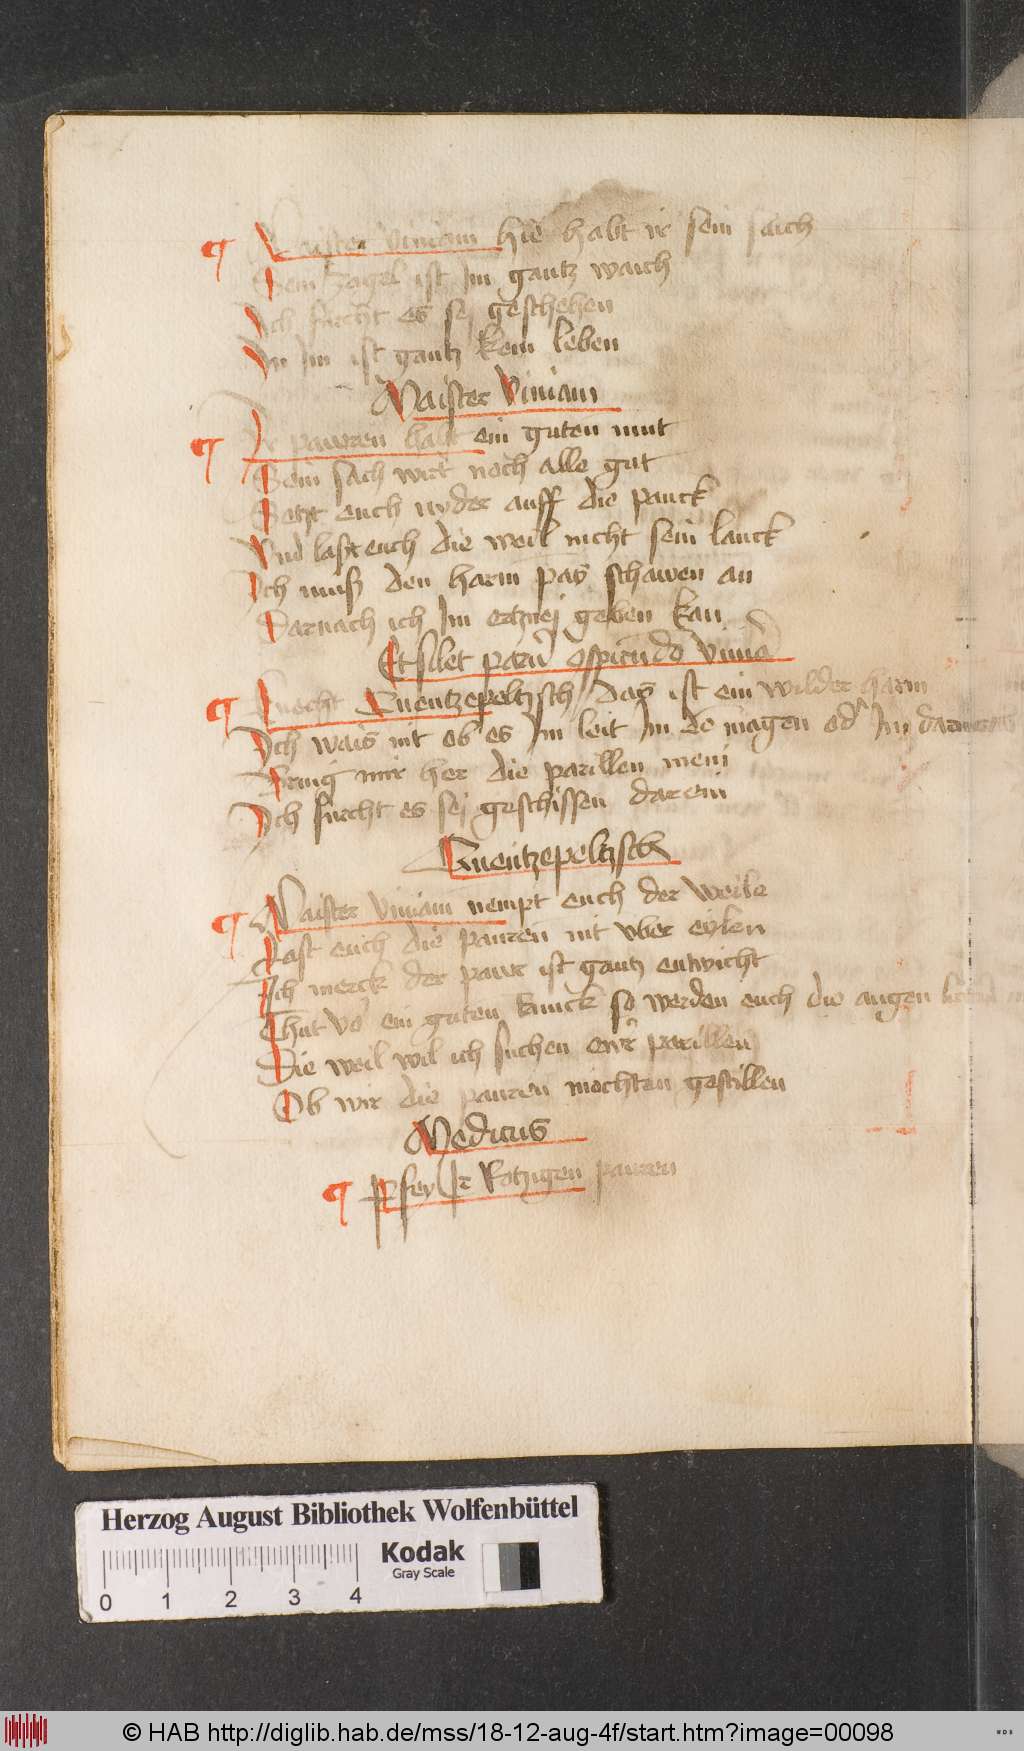 ¶ Maister viniam hie habt ir sein saich
Sein zagel ist Im gantz waich
Ich furcht es sej geschehen
An Im ist gantz kein leben
Maister viniam
¶ Ir pawren habt ein guten mut
Sein sach wirt noch alle gut
Setzt euch nyder auff die panck
Vnd last euch die weil nicht sein lanck
Ich muß den harm pas schawen an
Darnach ich Im ertznej geben kan
Et silet parū
¶ knecht Quentzepeltzsch das ist ein wilder harm
Ich wais nit ob es Im leit Im de magen od Im darm
Bring mir her die parillen mein
Ich furcht es sej geschissen darein
Quentzepeltzsch
¶ Maister viniam nempt euch der weile
Last euch die pauren nit vber eylen
Ich merck der paur ist gantz entwicht
Thut vo ein guten knuck so werden euch die augen
Die weil wil ich suchen ewr parillen
Ob wir die pauren mochten gestillen
Medicus
¶ Pfey Ir Rotzigen pauren
Herzog August Bibliothek Wolfenbüttel
Kodak
Gray Scale
0 1 2 3 4
© HAB http://diglib.hab.de/mss/18-12-aug-4f/start.htm?image=00098